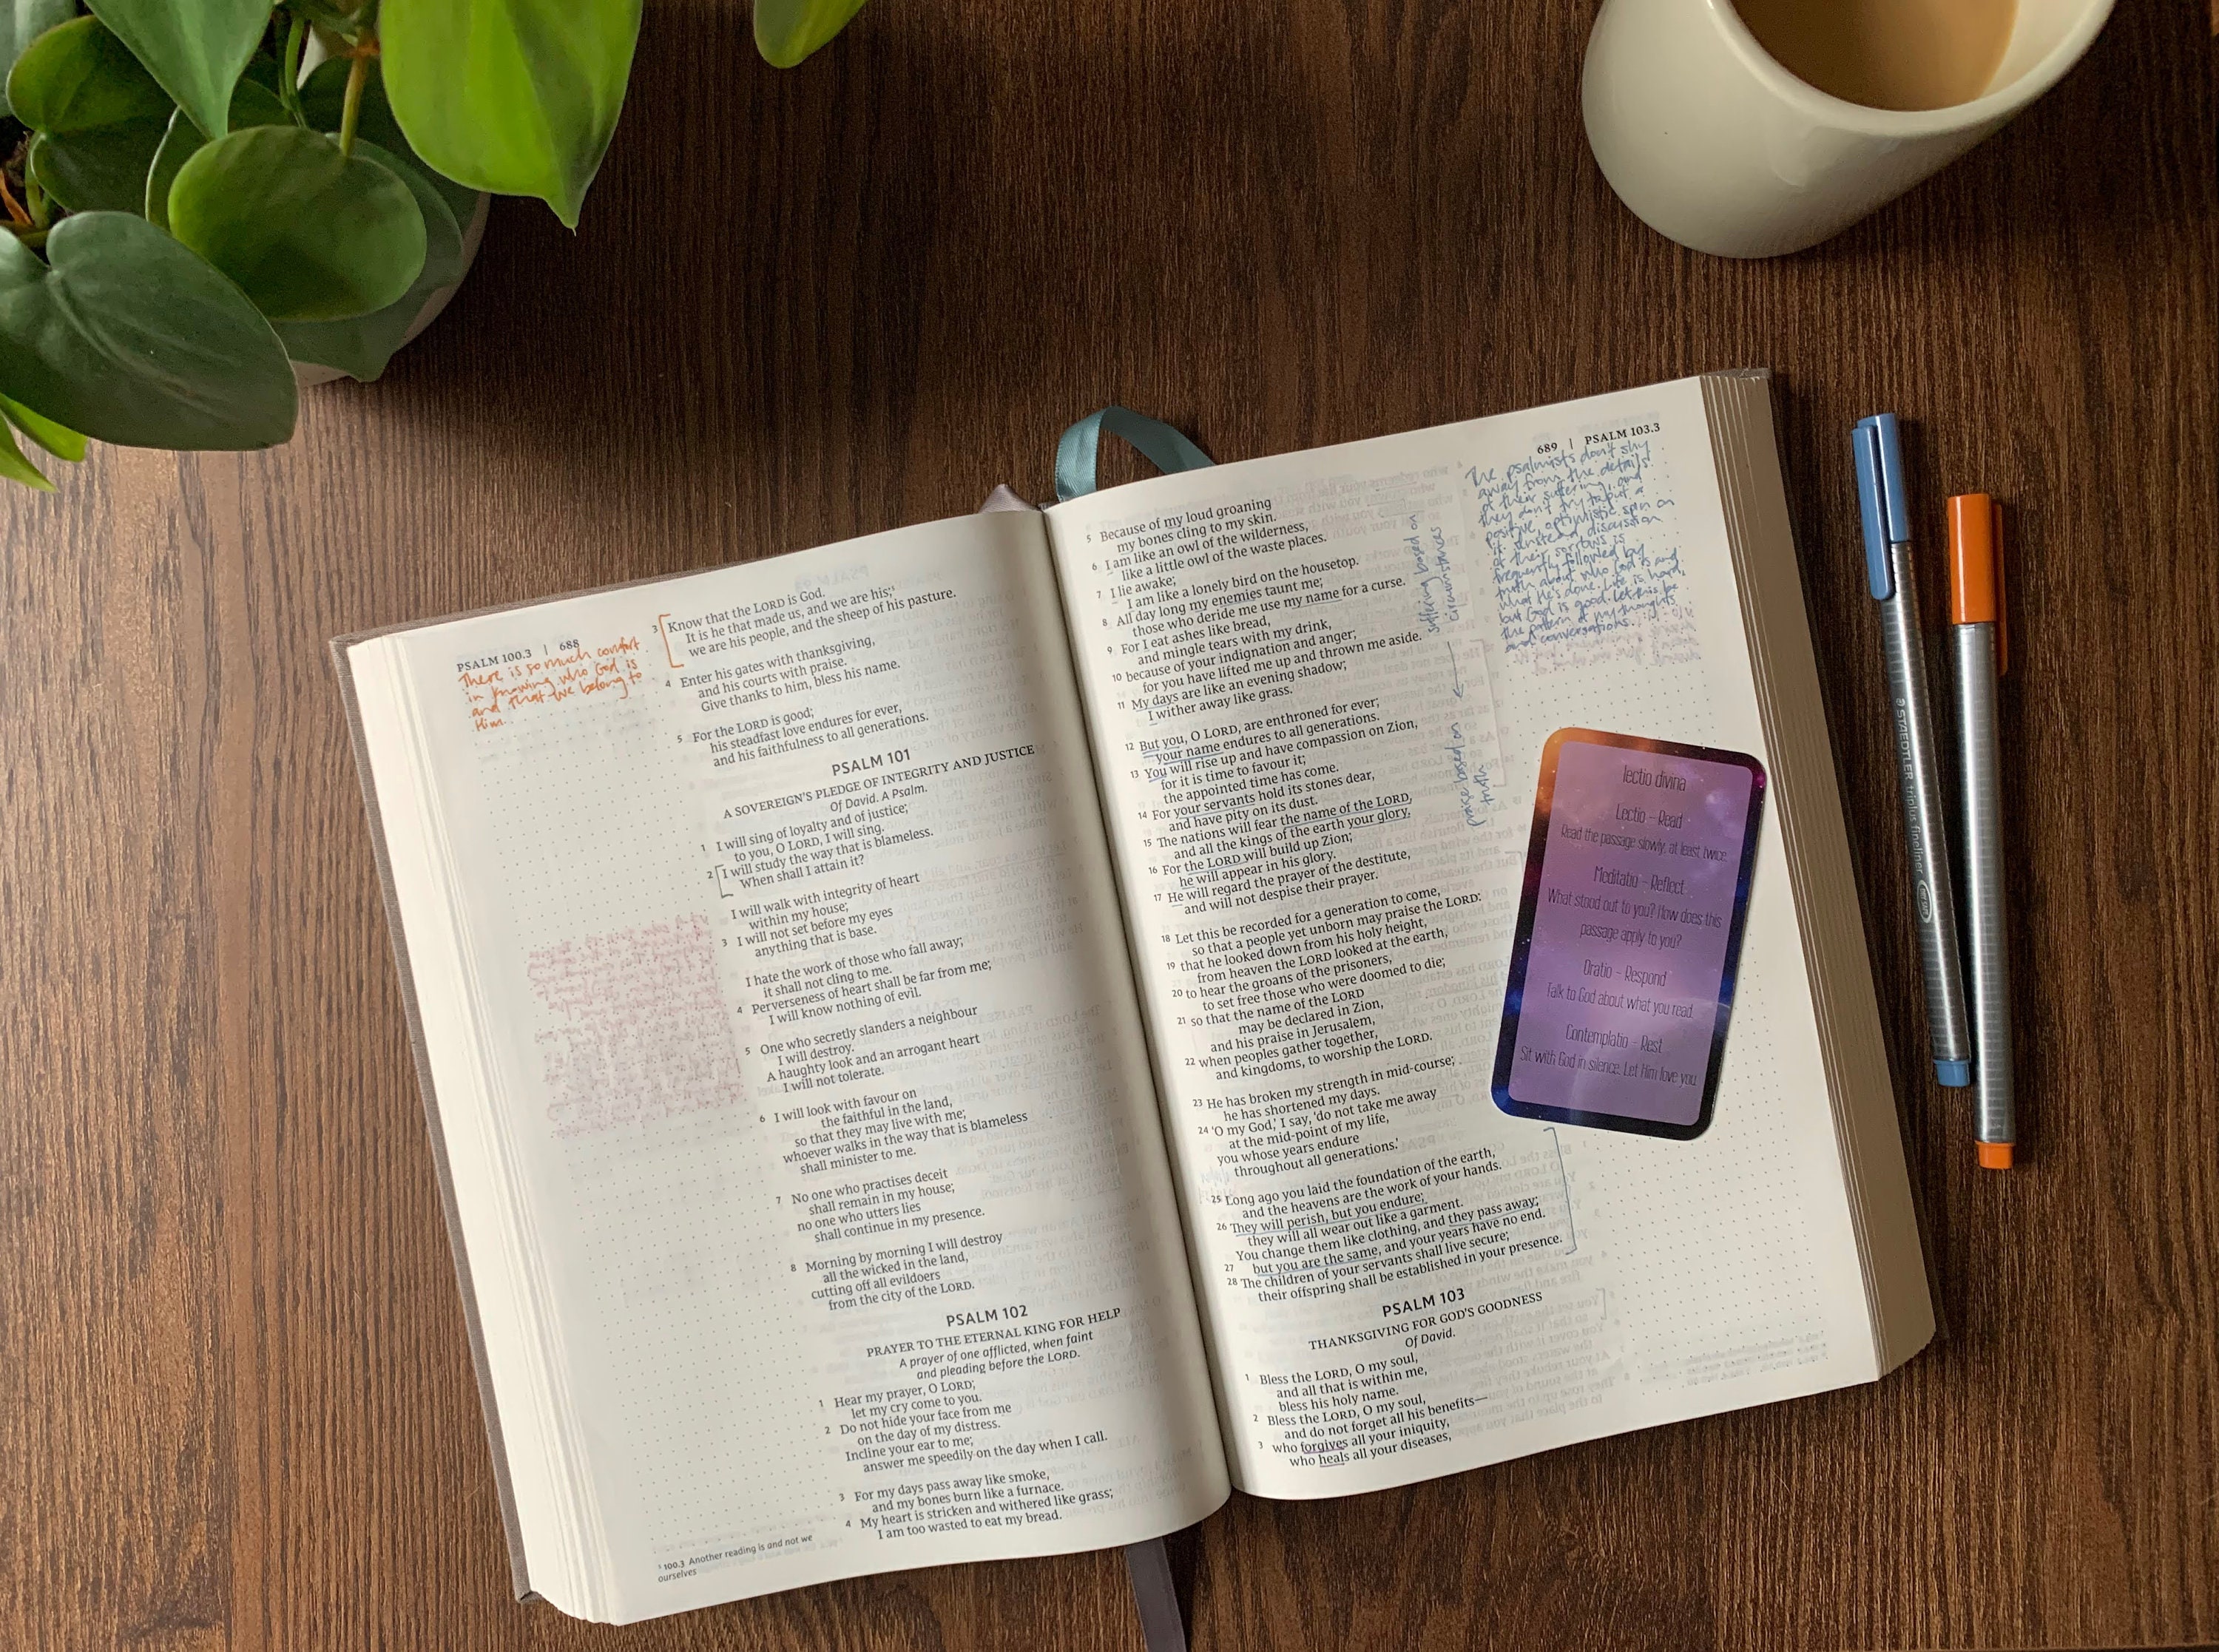 PSALM 100.3 | 688
There is so much comfort
in knowing who God is
and that we belong to
Him.
3 Know that the LORD is God.
It is he that made us, and we are his;
we are his people, and the sheep of his pasture.
4 Enter his gates with thanksgiving,
and his courts with praise.
Give thanks to him, bless his name.
5 For the LORD is good;
his steadfast love endures for ever,
and his faithfulness to all generations.
PSALM 101
A SOVEREIGN'S PLEDGE OF INTEGRITY AND JUSTICE
Of David. A Psalm.
1 I will sing of loyalty and of justice;
to you, O LORD, I will sing.
2 I will study the way that is blameless.
When shall I attain it?
I will walk with integrity of heart
within my house;
3 I will not set before my eyes
anything that is base.
I hate the work of those who fall away;
it shall not cling to me.
4 Perverseness of heart shall be far from me;
I will know nothing of evil.
5 One who secretly slanders a neighbour
I will destroy.
A haughty look and an arrogant heart
I will not tolerate.
6 I will look with favour on
the faithful in the land,
so that they may live with me;
whoever walks in the way that is blameless
shall minister to me.
7 No one who practises deceit
shall remain in my house;
no one who utters lies
shall continue in my presence.
8 Morning by morning I will destroy
all the wicked in the land,
cutting off all evildoers
from the city of the LORD.
PSALM 102
PRAYER TO THE ETERNAL KING FOR HELP
A prayer of one afflicted, when faint
and pleading before the LORD.
1 Hear my prayer, O LORD;
let my cry come to you.
2 Do not hide your face from me
on the day of my distress.
Incline your ear to me;
answer me speedily on the day when I call.
3 For my days pass away like smoke,
and my bones burn like a furnace.
4 My heart is stricken and withered like grass;
I am too wasted to eat my bread.
s 100.3 Another reading is and not we
ourselves
689 | PSALM 103.3
5 Because of my loud groaning
my bones cling to my skin.
6 I am like an owl of the wilderness,
like a little owl of the waste places.
7 I lie awake;
I am like a lonely bird on the housetop.
8 All day long my enemies taunt me;
those who deride me use my name for a curse.
9 For I eat ashes like bread,
and mingle tears with my drink,
10 because of your indignation and anger;
for you have lifted me up and thrown me aside.
11 My days are like an evening shadow;
I wither away like grass.
12 But you, O LORD, are enthroned for ever;
your name endures to all generations.
13 You will rise up and have compassion on Zion,
for it is time to favour it;
the appointed time has come.
14 For your servants hold its stones dear,
and have pity on its dust.
15 The nations will fear the name of the LORD,
and all the kings of the earth your glory.
16 For the LORD will build up Zion;
he will appear in his glory.
17 He will regard the prayer of the destitute,
and will not despise their prayer.
18 Let this be recorded for a generation to come,
so that a people yet unborn may praise the LORD:
19 that he looked down from his holy height,
from heaven the LORD looked at the earth,
20 to hear the groans of the prisoners,
to set free those who were doomed to die;
21 so that the name of the LORD
may be declared in Zion,
and his praise in Jerusalem,
22 when peoples gather together,
and kingdoms, to worship the LORD.
23 He has broken my strength in mid-course;
he has shortened my days.
24 'O my God,' I say, 'do not take me away
at the mid-point of my life,
you whose years endure
throughout all generations.'
25 Long ago you laid the foundation of the earth,
and the heavens are the work of your hands.
26 They will perish, but you endure;
they will all wear out like a garment.
You change them like clothing, and they pass away;
27 but you are the same, and your years have no end.
28 The children of your servants shall live secure;
their offspring shall be established in your presence.
PSALM 103
THANKSGIVING FOR GOD'S GOODNESS
Of David.
1 Bless the LORD, O my soul,
and all that is within me,
bless his holy name.
2 Bless the LORD, O my soul,
and do not forget all his benefits—
3 who forgives all your iniquity,
who heals all your diseases,
suffering based on
circumstances
praise based on
truth
The psalmists don't shy
away from the details
of their suffering, and
they don't try to put a
positive, optimistic spin on
it. Instead, discussion
of their sorrows is
frequently followed by
truth about who God is and
what he's done. Life is hard,
but God is good. Let this be
the pattern of my thoughts
and conversations.
lectio divina
Lectio - Read
Read the passage slowly, at least twice.
Meditatio - Reflect
What stood out to you? How does this
passage apply to you?
Oratio - Respond
Talk to God about what you read.
Contemplatio - Rest
Sit with God in silence. Let Him love you.
STAEDTLER triplus fineliner